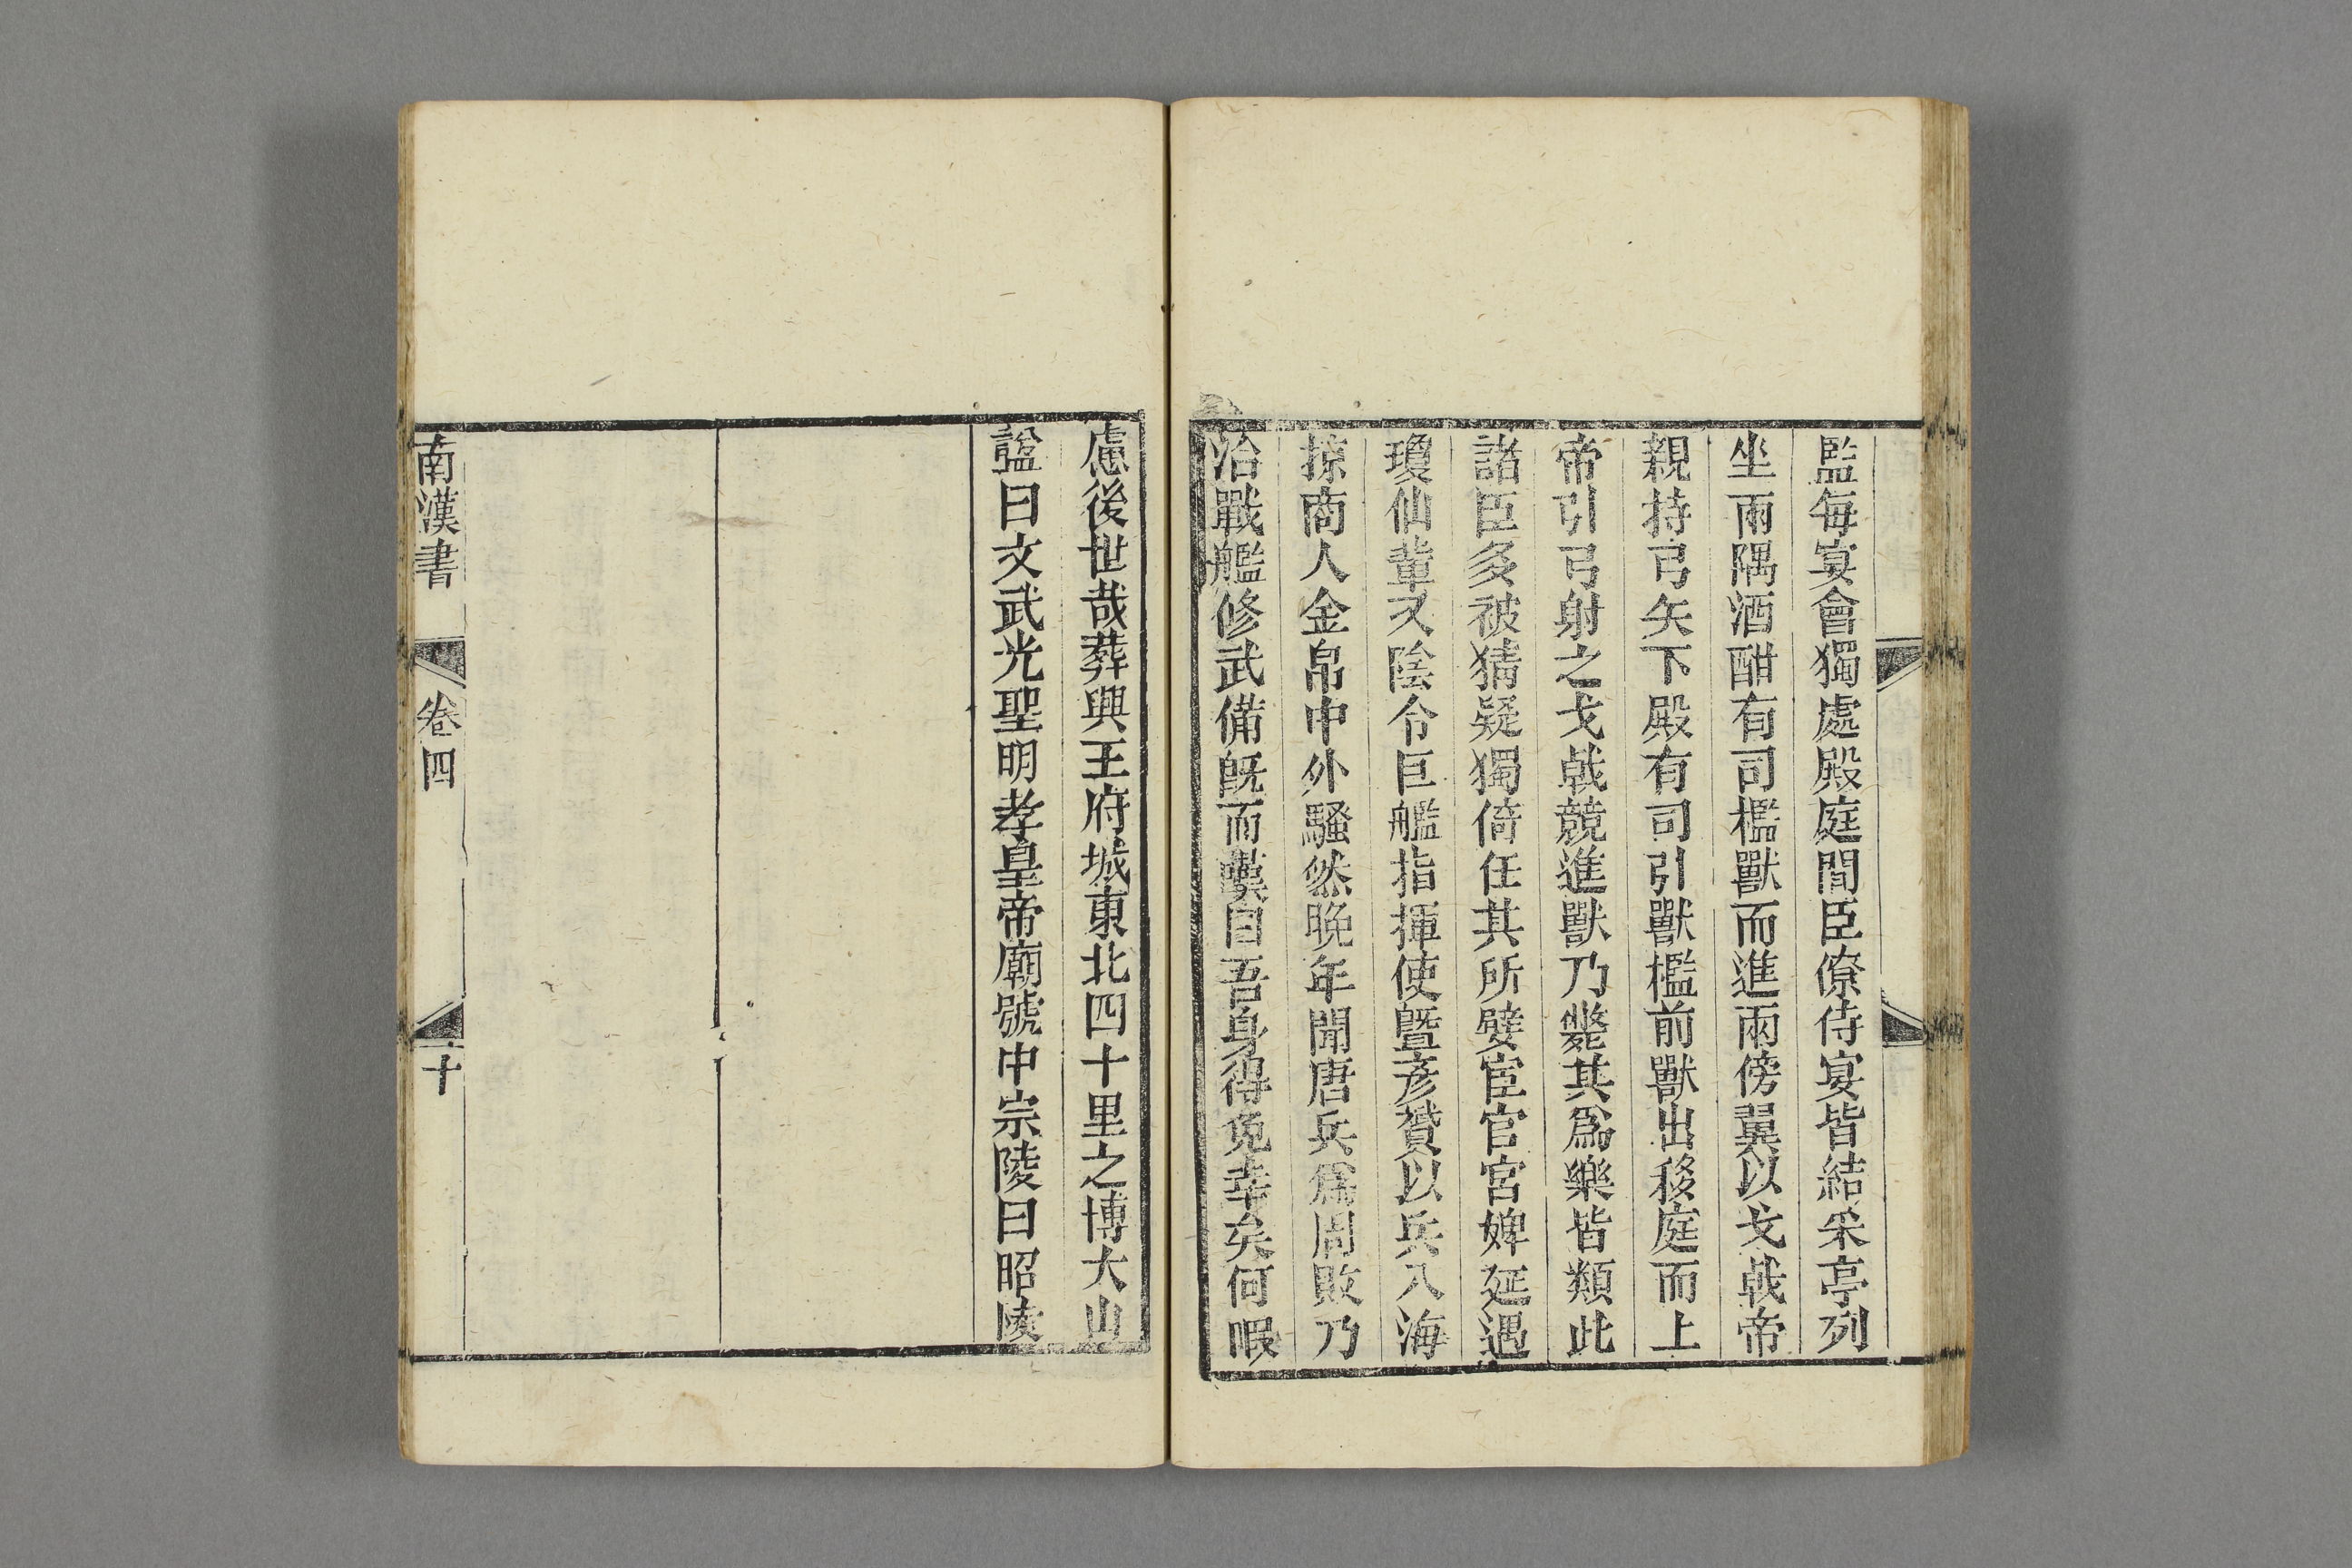 監每宴會獨處殿庭間臣僚侍宴皆結采亭列
坐兩隅酒酣有司檻獸而進兩傍翼以戈戟帝
親持弓矢下殿有司引獸檻前獸出移庭而上
帝引弓射之戈戟競進獸乃斃其爲樂皆類此
諸臣多被猜疑獨倚任其所嬖宦官宮婢延遇
瓊仙輩又陰令巨艦指揮使曁彥贇以兵入海
掠商人金帛中外騷然晚年聞唐兵爲周敗乃
治戰艦修武備旣而嘆曰吾身得免幸矣何暇
慮後世哉葬興王府城東北四十里之博大山
諡曰文武光聖明孝皇帝廟號中宗陵曰昭陵
南漢書 卷四 十